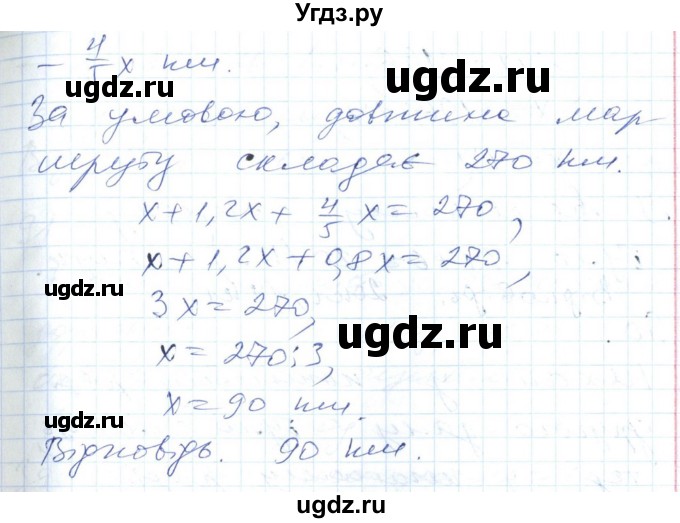 Угдз.ру
- 4/5 x км.
За умовою, довжина мар
шруту складає 270 км.
x + 1,2x + 4/5 x = 270,
x + 1,2x + 0,8x = 270,
3x = 270,
x = 270:3,
x = 90 км.
Відповідь. 90 км.
ugdz.ru
ugdz.ru
ugdz.ru
ugdz.ru
ugdz.ru
ugdz.ru
ugdz.ru
ugdz.ru
ugdz.ru